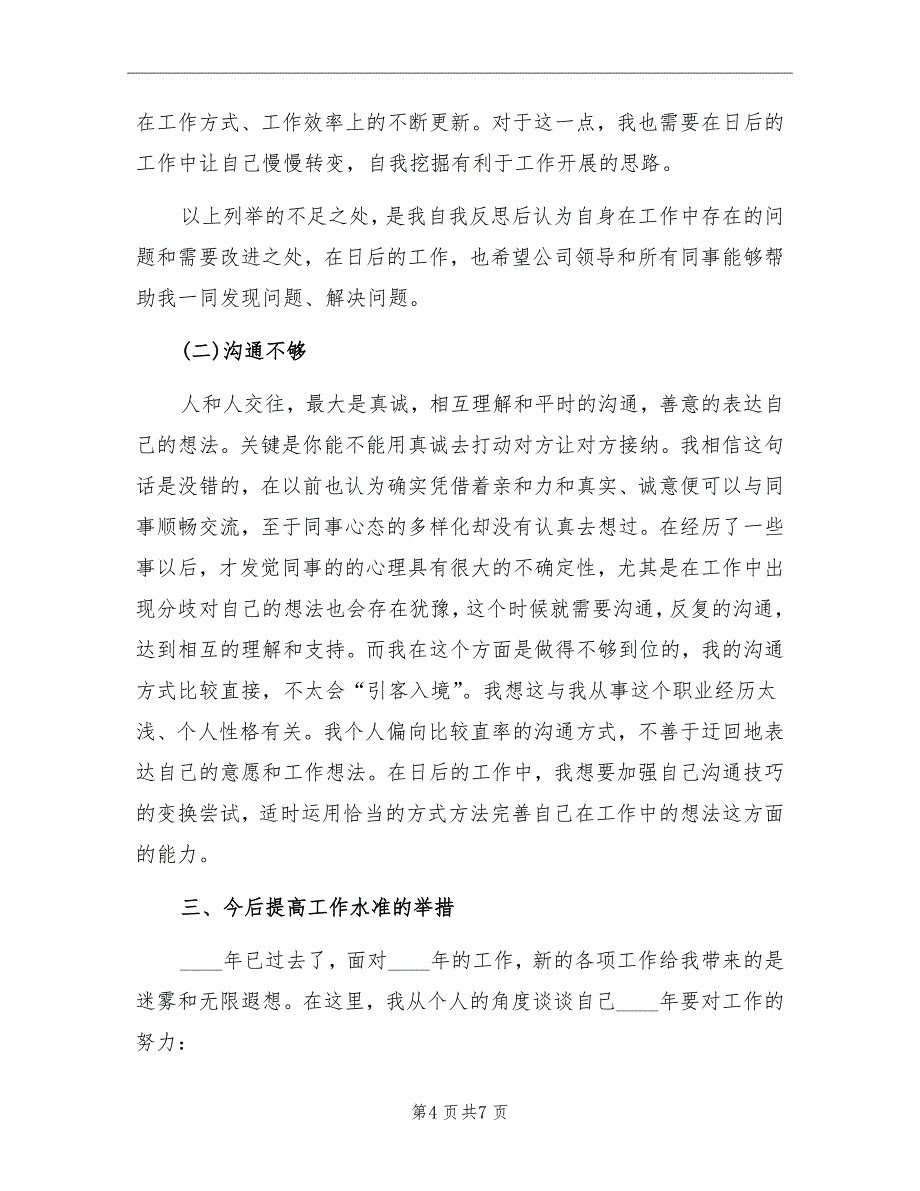 在工作方式、工作效率上的不断更新。对于这一点，我也需要在日后的
工作中让自己慢慢转变，自我挖掘有利于工作开展的思路。
以上列举的不足之处，是我自我反思后认为自身在工作中存在的问
题和需要改进之处，在日后的工作，也希望公司领导和所有同事能够帮
助我一同发现问题、解决问题。
(二)沟通不够
人和人交往，最大是真诚，相互理解和平时的沟通，善意的表达自
己的想法。关键是你能不能用真诚去打动对方让对方接纳。我相信这句
话是没错的，在以前也认为确实凭借着亲和力和真实、诚意便可以与同
事顺畅交流，至于同事心态的多样化却没有认真去想过。在经历了一些
事以后，才发觉同事的的心理具有很大的不确定性，尤其是在工作中出
现分歧对自己的想法也会存在犹豫，这个时候就需要沟通，反复的沟通，
达到相互的理解和支持。而我在这个方面是做得不够到位的，我的沟通
方式比较直接，不太会“引客入境”。我想这与我从事这个职业经历太
浅、个人性格有关。我个人偏向比较直率的沟通方式，不善于迂回地表
达自己的意愿和工作想法。在日后的工作中，我想要加强自己沟通技巧
的变换尝试，适时运用恰当的方式方法完善自己在工作中的想法这方面
的能力。
三、今后提高工作水准的举措
____年已过去了，面对____年的工作，新的各项工作给我带来的是
迷雾和无限遐想。在这里，我从个人的角度谈谈自己____年要对工作的
努力：
第4 页共7 页